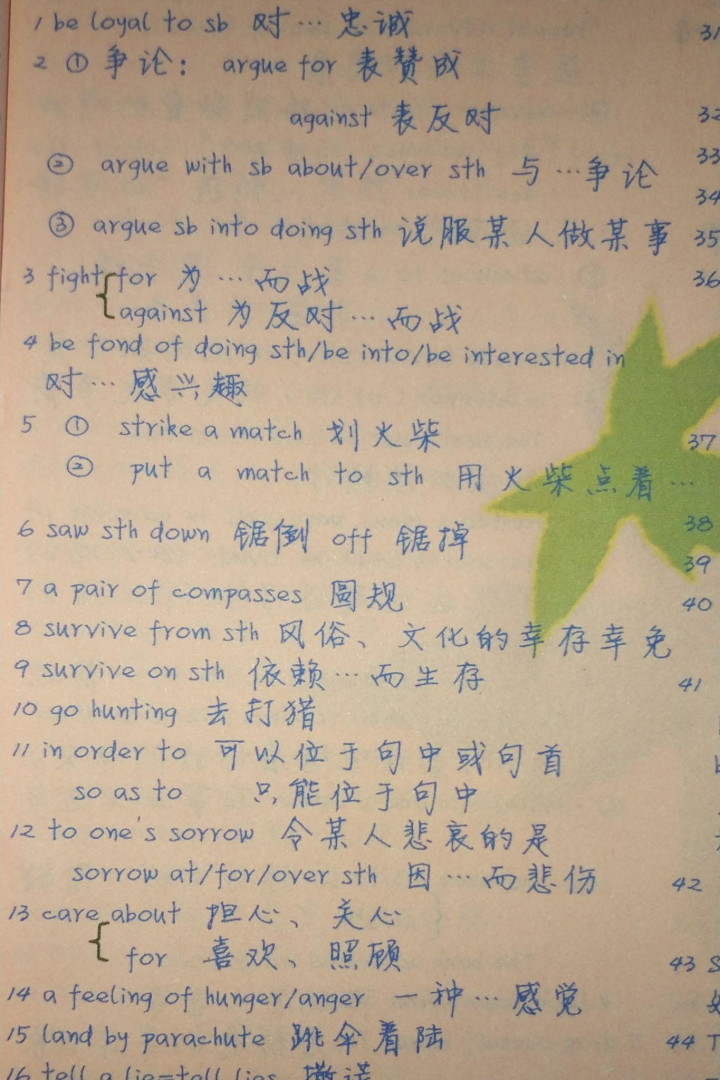 1 be loyal to sb 对…忠诚
2 ① 争论： argue for 表赞成
against 表反对
② argue with sb about/over sth 与…争论
③ argue sb into doing sth 说服某人做某事
3 fight { for 为…而战
against 为反对…而战
4 be fond of doing sth/be into/be interested in
对…感兴趣
5 ① strike a match 划火柴
② put a match to sth 用火柴点着…
6 saw sth down 锯倒 off 锯掉
7 a pair of compasses 圆规
8 survive from sth 风俗、文化的幸存幸免
9 survive on sth 依赖…而生存
10 go hunting 去打猎
11 in order to 可以位于句中或句首
so as to 只能位于句中
12 to one's sorrow 令某人悲哀的是
sorrow at/for/over sth 因…而悲伤
13 care { about 担心、关心
for 喜欢、照顾
14 a feeling of hunger/anger 一种…感觉
15 land by parachute 跳伞着陆
16 tell a lie=tell lies 撒谎
31
32
33
34
35
36
37
38
39
40
41
42
43 S
44 T